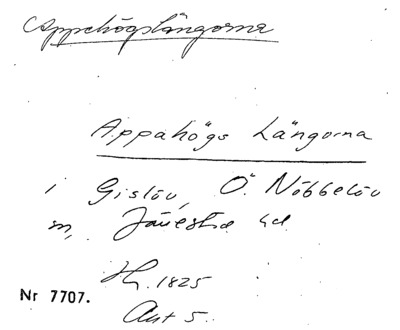 Appehögslängorna
Appahögs Längorna
i Gislöv, Ö. Nöbbelöv
m, Järrestad hd
Hs. 1825
Ant 5.
Nr 7707.